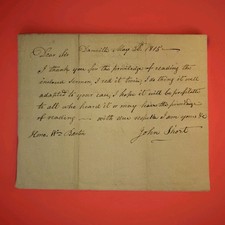 Dear Sir Danville May 20th 1815
I thank you for the priviledge of reading the
inclosed Sermon, I red it twice, I do think it well
adapted to your case, I hope it will be profitable
to all who heard it or may have the priviledge
of reading with due respects I am yours &c
Honr. Wm Baxter John Short